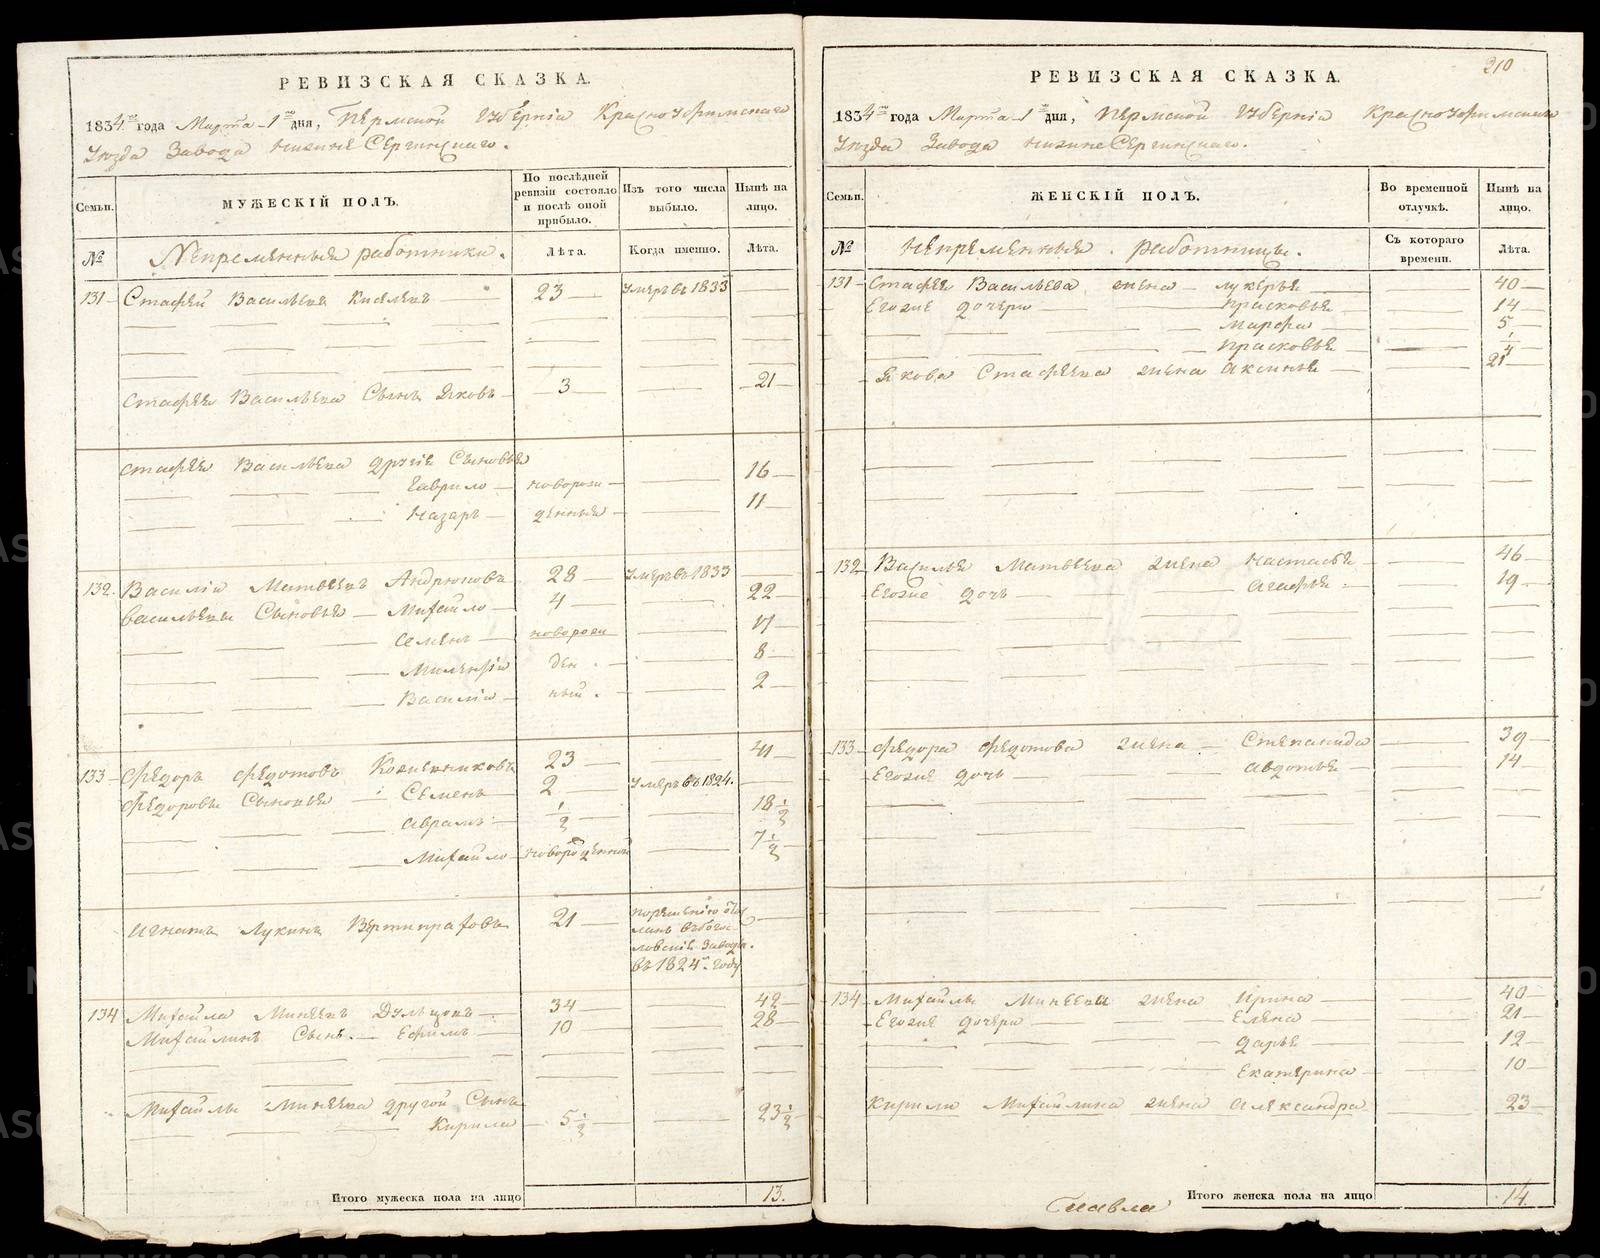 РЕВИЗСКАЯ СКАЗКА.
1834го года Марта 1го дня, Пермской Губерніи Красноуфимскаго
Уѣзда Завода Нижне Сергинскаго.
Семьи.
МУЖЕСКІЙ ПОЛЪ.
По послѣдней ревизіи состояло и послѣ оной прибыло.
Изъ того числа выбыло.
Нынѣ на лицо.
№
Непременныя работники.
Лѣта.
Когда именно.
Лѣта.
131 Стафей Васильевъ 23 Умеръ въ 1833
Стафея Васильева Сынъ Яковъ 3 21
Стафея Васильева другія Сыновья
Гаврило новорож 16
Назаръ денныя 11
132. Василій Матвеевъ Андрюковъ 28 Умеръ въ 1833
Васильевы Сыновья Михайло 4 22
Семенъ новорож 17
8
ден
Василій ный 2
133 Федоръ Федотовъ 23 41
Федоровы Сыновья Семенъ 2 Умеръ въ 1824.
Аврамъ 1/2 18 1/2
Михайло новорожденной 7 1/2
Игнатъ Лукинъ 21 по решенію
въ Бого
ловскіе Заводы
въ 1824м году
134 Михайла Минеевъ 34 42
Михайлинъ Сынъ Ефимъ 10 28
Михайлы Минеева другой Сынъ
Кирила 5 1/2 23 1/2
Итого мужеска пола на лицо 13.
210
РЕВИЗСКАЯ СКАЗКА.
1834го года Марта 1го дня, Пермской Губерніи Красноуфимскаго
Уѣзда Завода Нижне Сергинскаго.
Семьи.
ЖЕНСКІЙ ПОЛЪ.
Во временной отлучкѣ.
Нынѣ на лицо.
№
Непременныя работницы.
Съ котораго времени.
Лѣта.
131 Стафея Васильева жена Лукерья 40
Егоже дочери Прасковья 14
Марфа 5
Прасковья 1/4
Якова Стафеева жена Аксинья 21
132 Василья Матвеева жена Настасья 46
Егоже дочь Агафья 19
133 Федора Федотова жена Степанида 39
Егоже дочь Авдотья 14
134 Михайлы Минеева жена Ирина 40
Егоже дочери Елена 21
Дарья 12
Екатерина 10
Кирилы Михайлина жена Александра 23
Итого женска пола на лицо 14